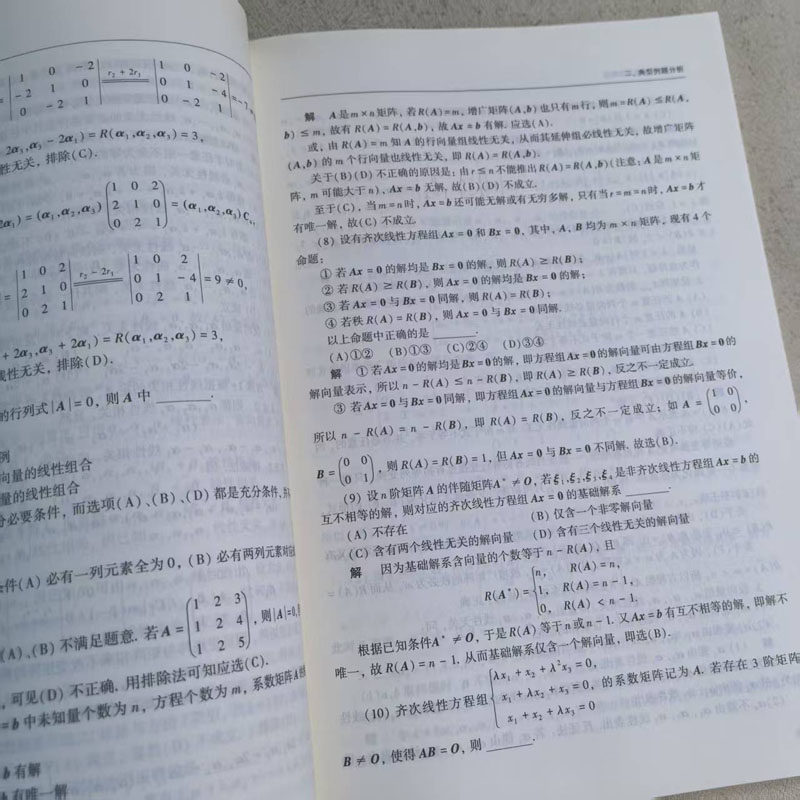 = | 1 0 -2 | r₂ + 2r₁ | 1 0 -2 |
| -2 1 0 | ═══ | 0 1 -4 | = -7
| 0 -2 1 | | 0 -2 1 |
2α₁, α₃ - 2α₁) = R(α₁, α₂, α₃) = 3,
性无关, 排除(C).
2α₁) = (α₁, α₂, α₃) (1 0 2; 2 1 0; 0 2 1) = (α₁, α₂, α₃)C₄,
= | 1 0 2 | r₂ - 2r₁ | 1 0 2 |
| 2 1 0 | ═══ | 0 1 -4 | = 9 ≠ 0,
| 0 2 1 | | 0 2 1 |
+ 2α₃, α₃ + 2α₁) = R(α₁, α₂, α₃) = 3,
线性无关, 排除(D).
的行列式|A| = 0, 则 A 中 ______.
例
向量的线性组合
量的线性组合
分必要条件, 而选项(A)、(B)、(D) 都是充分条件,
条件(A) 必有一列元素全为 0, (B) 必有两列元素对应
(A)、(B) 不满足题意. 若 A = (1 2 3; 1 2 4; 1 2 5), 则|A| = 0,
, 可见(D) 不正确. 用排除法可知应选(C).
= b 中未知量个数为 n, 方程个数为 m, 系数矩阵A
b 有解
b 有唯一解
二、典型例题分析
解 A 是 m × n 矩阵, 若 R(A) = m, 增广矩阵(A, b) 也只有 m 行, 则 m = R(A) ≤ R(A,
b) ≤ m, 故有 R(A) = R(A, b), 故 Ax = b 有解. 应选(A).
或, 由 R(A) = m 知 A 的行向量组线性无关, 从而其延伸组必线性无关, 故增广矩阵
(A, b) 的 m 个行向量也线性无关, 即 R(A) = R(A, b).
关于(B)(D) 不正确的原因是: 由 r ≤ n 不能推出 R(A) = R(A, b) (注意: A 是 m × n 矩
阵, m 可能大于 n), Ax = b 无解, 故(B)(D) 不成立.
至于(C), 当 m = n 时, Ax = b 还可能无解或有无穷多解, 只有当 r = m = n 时, Ax = b 才
有唯一解, 故(C) 不成立.
(8) 设有齐次线性方程组 Ax = 0 和 Bx = 0, 其中, A, B 均为 m × n 矩阵, 现有 4 个
命题:
① 若 Ax = 0 的解均是 Bx = 0 的解, 则 R(A) ≥ R(B);
② 若 R(A) ≥ R(B), 则 Ax = 0 的解均是 Bx = 0 的解;
③ 若 Ax = 0 与 Bx = 0 同解, 则 R(A) = R(B);
④ 若秩 R(A) = R(B), 则 Ax = 0 与 Bx = 0 同解.
以上命题中正确的是 ______.
(A)①② (B)①③ (C)②④ (D)③④
解 ① 若 Ax = 0 的解均是 Bx = 0 的解, 即方程组 Ax = 0 的解向量可由方程组 Bx = 0 的
解向量表示, 所以 n - R(A) ≤ n - R(B), 即 R(A) ≥ R(B), 反之不一定成立.
③ 若 Ax = 0 与 Bx = 0 同解, 即方程组 Ax = 0 的解向量与方程组 Bx = 0 的解向量等价,
所以 n - R(A) = n - R(B), 即 R(A) = R(B), 反之不一定成立; 如 A = (1 0; 0 0),
B = (0 0; 0 1), 则 R(A) = R(B) = 1, 但 Ax = 0 与 Bx = 0 不同解. 故选(B).
(9) 设 n 阶矩阵 A 的伴随矩阵 A* ≠ O, 若 ξ₁, ξ₂, ξ₃, ξ₄ 是非齐次线性方程组 Ax = b 的
互不相等的解, 则对应的齐次线性方程组 Ax = 0 的基础解系 ______.
(A) 不存在 (B) 仅含一个非零解向量
(C) 含有两个线性无关的解向量 (D) 含有三个线性无关的解向量
解 因为基础解系含向量的个数等于 n - R(A), 且
R(A*) = { n, R(A) = n,
1, R(A) = n - 1,
0, R(A) < n - 1.
根据已知条件 A* ≠ O, 于是 R(A) 等于 n 或 n - 1. 又 Ax = b 有互不相等的解, 即解不
唯一, 故 R(A) = n - 1. 从而基础解系仅含一个解向量, 即选(B).
(10) 齐次线性方程组 { λx₁ + x₂ + λ²x₃ = 0,
x₁ + λx₂ + x₃ = 0, 的系数矩阵记为 A. 若存在 3 阶矩阵
x₁ + x₂ + λx₃ = 0
B ≠ O, 使得 AB = O, 则 ______.